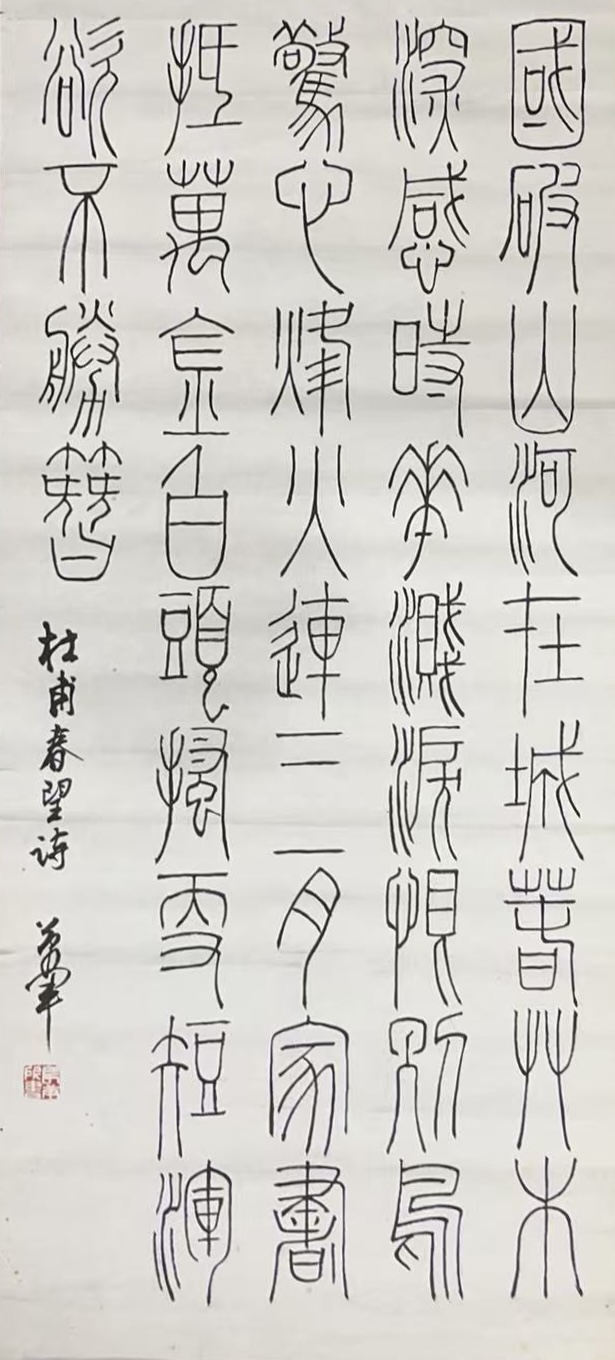 國破山河在城春草木
深感時花濺淚恨別鳥
驚心烽火連三月家書
抵萬金白頭搔更短渾
欲不勝簪
杜甫春望詩